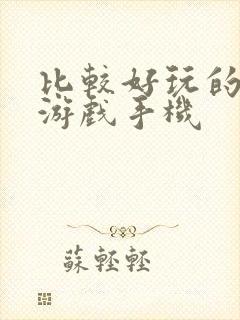 比較好玩的
游戲手機
蘇輕輕